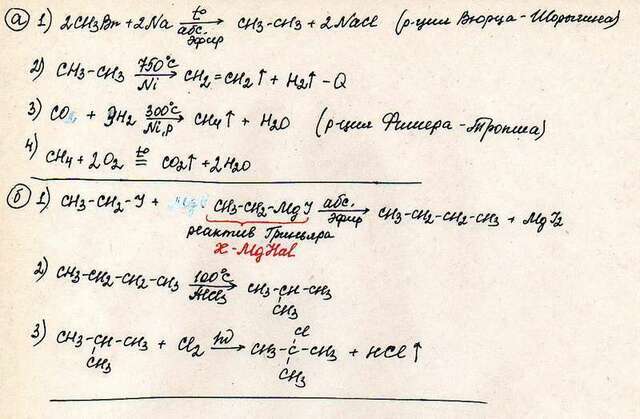 а) 1) 2CH3Br + 2Na t° → абс. эфир CH3-CH3 + 2NaCl (р-ция Вюрца-Шорыгина)
2) CH3-CH3 750°C → Ni CH2=CH2↑ + H2↑ - Q
3) CO + 3H2 300°C → Ni, p CH4↑ + H2O (р-ция Фишера-Тропша)
4) CH4 + 2O2 t° = CO2↑ + 2H2O
б) 1) CH3-CH2-I + CH3-CH2-MgI абс. → эфир CH3-CH2-CH2-CH3 + MgI2
реактив Гриньяра
X-MgHal
2) CH3-CH2-CH2-CH3 100°C → AlCl3 CH3-CH-CH3
CH3
Cl
3) CH3-CH-CH3 + Cl2 hν → CH3-C-CH3 + HCl↑
CH3 CH3